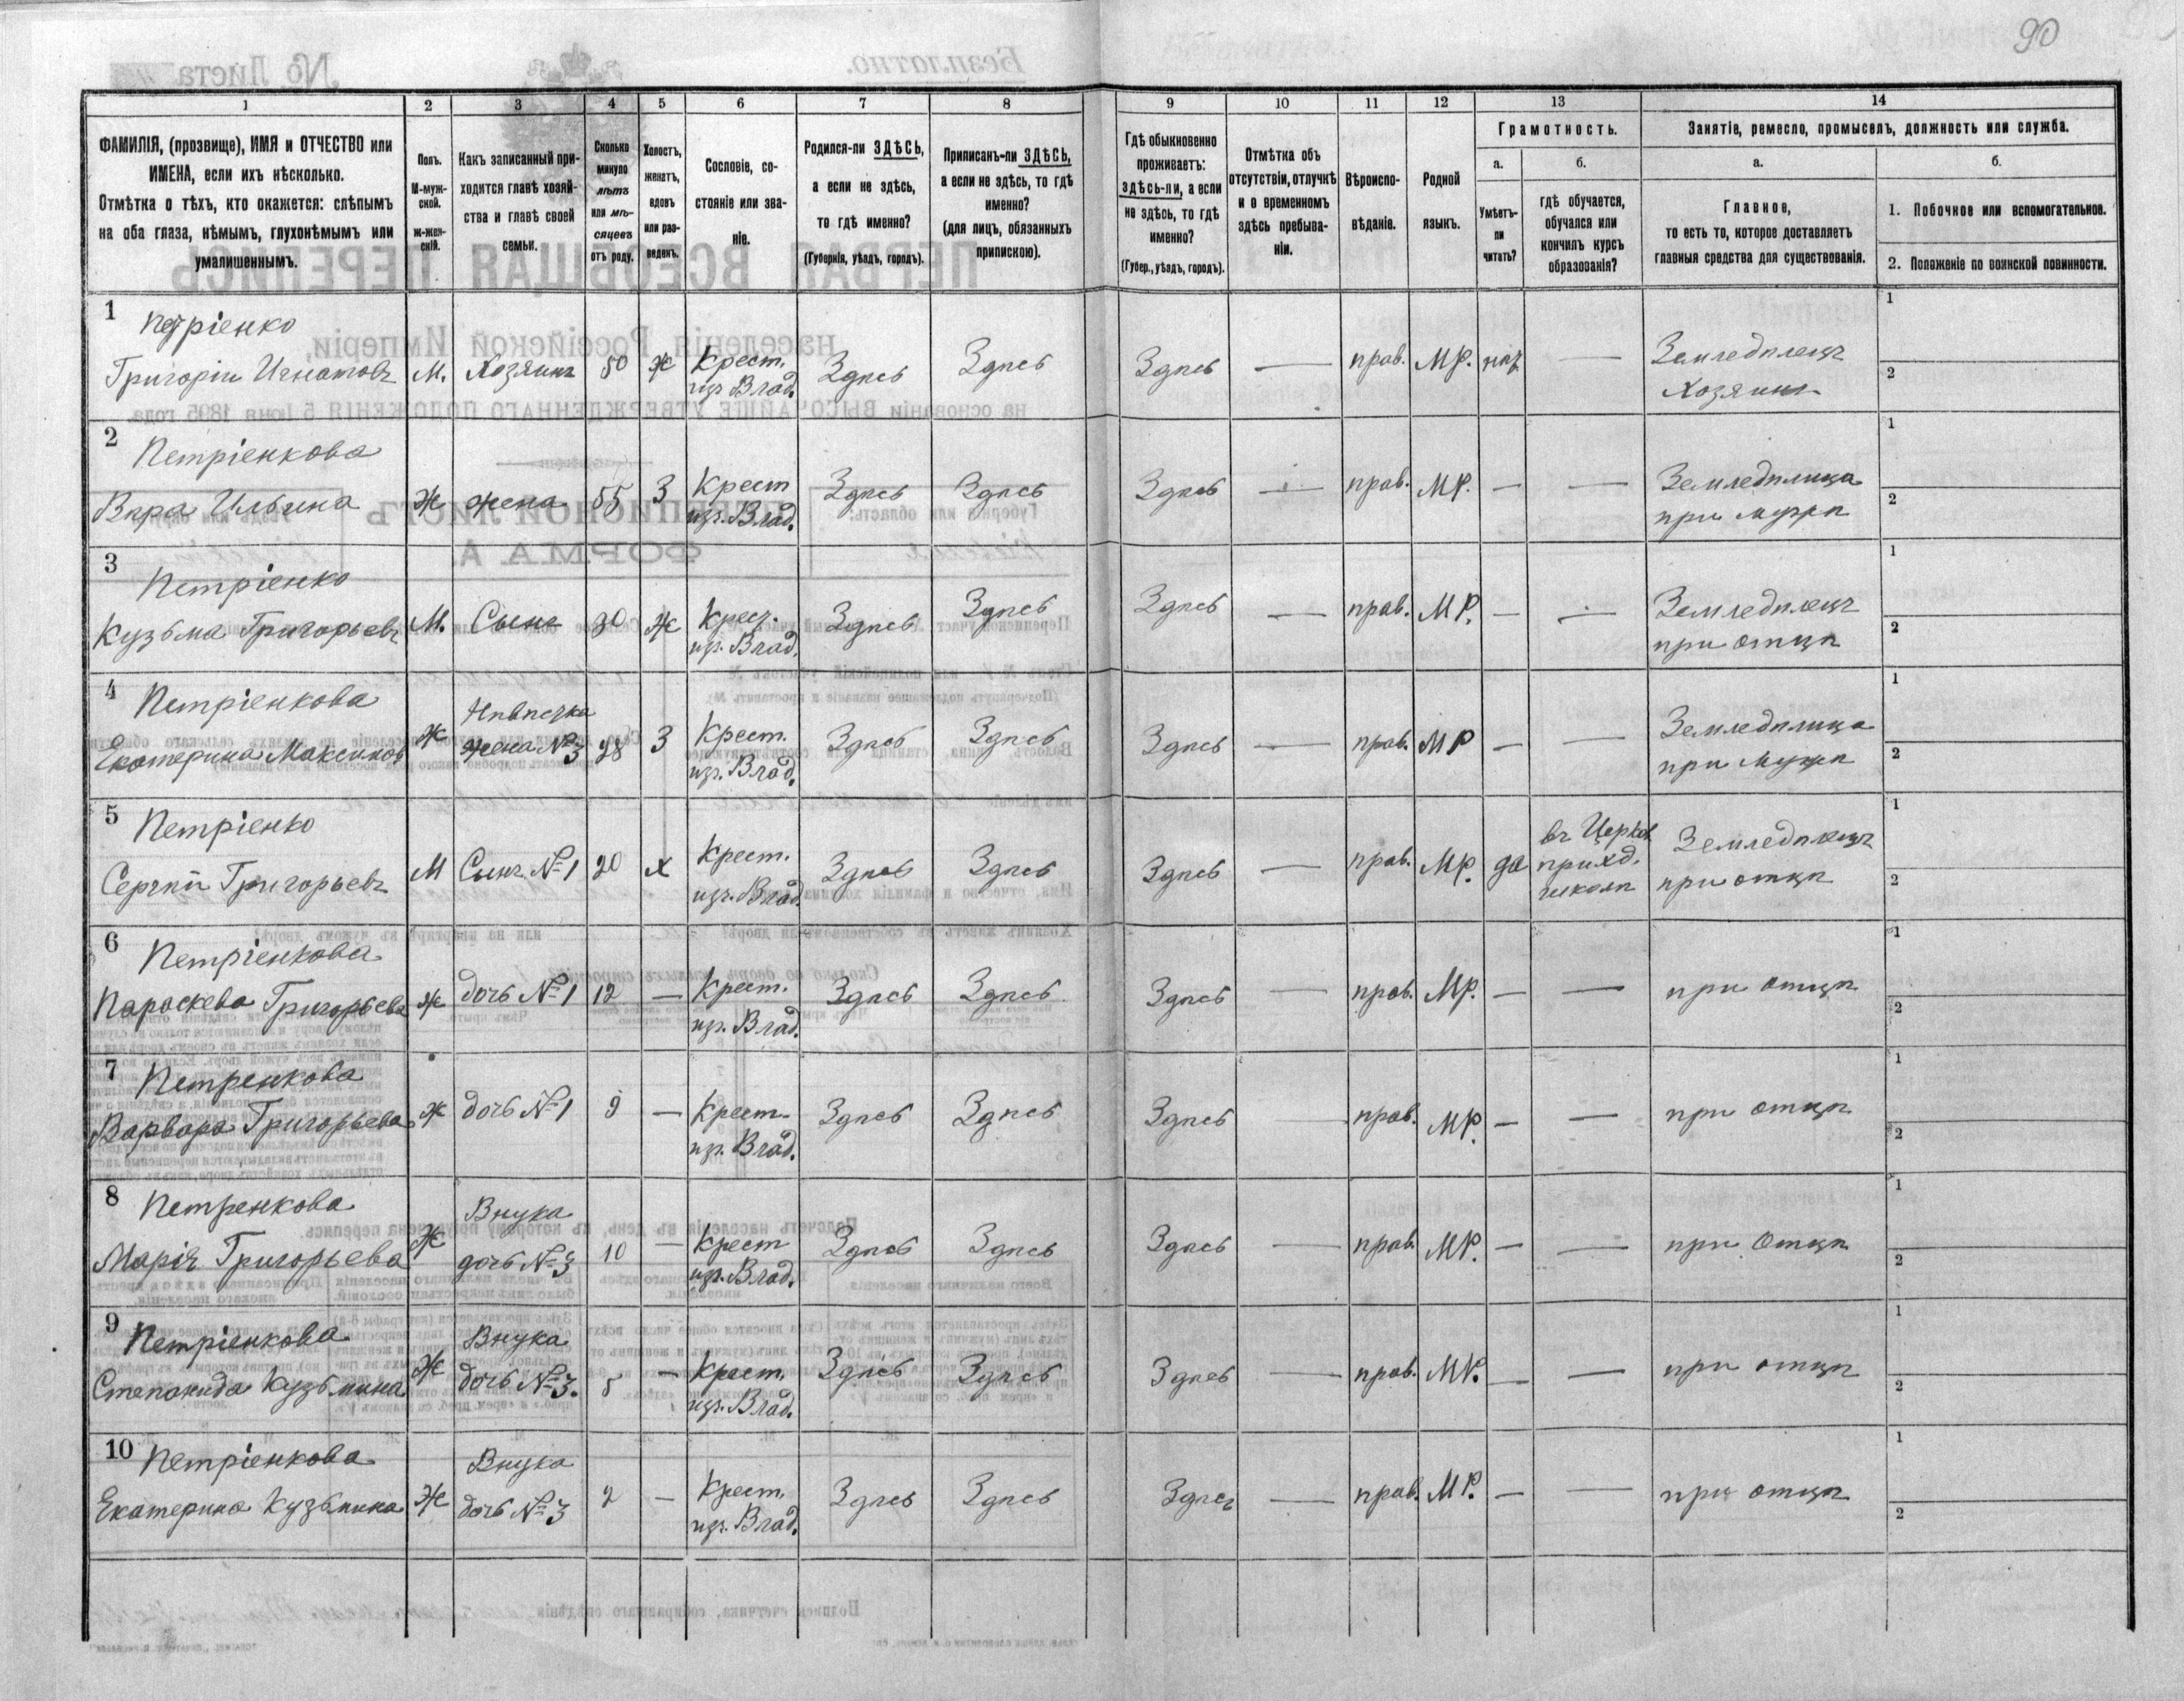 90
1 2 3 4 5 6 7 8 9 10 11 12 13 14
ФАМИЛІЯ, (прозвище), ИМЯ и ОТЧЕСТВО или
ИМЕНА, если ихъ нѣсколько.
Отмѣтка о тѣхъ, кто окажется: слѣпымъ
на оба глаза, нѣмымъ, глухонѣмымъ или
умалишеннымъ.
Полъ.
М-муж-
ской.
ж-жен-
скій.
Какъ записанный при-
ходится главѣ хозяй-
ства и главѣ своей
семьи.
Сколько
минуло
лѣтъ
или мѣ-
сяцевъ
отъ роду.
Холостъ,
женатъ,
вдовъ
или раз-
веденъ.
Сословіе, со-
стояніе или зва-
ніе.
Родился-ли ЗДѢСЬ,
а если не здѣсь,
то гдѣ именно?
(Губернія, уѣздъ, городъ).
Приписанъ-ли ЗДѢСЬ,
а если не здѣсь, то гдѣ
именно?
(для лицъ, обязанныхъ
припискою).
Гдѣ обыкновенно
проживаетъ:
здѣсь-ли, а если
не здѣсь, то гдѣ
именно?
(Губер., уѣздъ, городъ).
Отмѣтка объ
отсутствіи, отлучкѣ
и о временномъ
здѣсь пребыва-
ніи.
Вѣроиспо-
вѣданіе.
Родной
языкъ.
Грамотность.
а.
Умѣетъ-
ли
читать?
б.
гдѣ обучается,
обучался или
кончилъ курсъ
образованія?
Занятіе, ремесло, промыселъ, должность или служба.
а.
Главное,
то есть то, которое доставляетъ
главныя средства для существованія.
б.
1. Побочное или вспомогательное.
2. Положеніе по воинской повинности.
1 Петріенко
Григорій Игнатовъ М. Хозяинъ 50 ж Крест. изъ Влад. Здѣсь Здѣсь Здѣсь — прав. МР. — Земледѣлецъ
Хозяинъ
1
2
2 Петріенкова
Вѣра Ильина Ж жена 55 З Крест изъ. Влад. Здѣсь Здѣсь Здѣсь — прав. МР. — — Земледѣлица
при мужѣ
1
2
3 Петріенко
Кузьма Григорьевъ М. Сынъ 30 Ж Крест. изъ. Влад. Здѣсь Здѣсь Здѣсь — прав. МР. — — Земледѣлецъ
при отцѣ
1
2
4 Петріенкова
Екатерина Максимов Ж Нивѣстка жена №3 28 З Крест. изъ. Влад. Здѣсь Здѣсь Здѣсь — прав. МР — — Земледѣлица
при мужѣ
1
2
5 Петріенко
Сергѣй Григорьевъ М Сынъ №1 20 Х Крест. изъ. Влад. Здѣсь Здѣсь Здѣсь — прав. МР. да въ Церков приход. школѣ Земледѣлецъ
при отцѣ
1
2
6 Петріенкова
Параскева Григорьева ж дочь №1 12 — Крест. изъ. Влад. Здѣсь Здѣсь Здѣсь — прав. МР. — — при отцѣ
1
2
7 Петренкова
Варвара Григорьева ж дочь №1 9 — Крест. изъ. Влад. Здѣсь Здѣсь Здѣсь — прав. МР. — — при отцѣ
1
2
8 Петренкова
Марія Григорьева Ж Внука дочь №3 10 — Крест изъ. Влад. Здѣсь Здѣсь Здѣсь — прав. МР. — — при Отцѣ
1
2
9 Петріенкова
Степанида Кузьмина Ж Внука дочь №3. 5 — Крест. изъ. Влад. Здѣсь Здѣсь Здѣсь — прав. МР. — — при отцѣ
1
2
10 Петріенкова
Екатерина Кузьмина Ж Внука дочь №3 2 — Крест. изъ. Влад. Здѣсь Здѣсь Здѣсь — прав. МР. — — при отцѣ
1
2